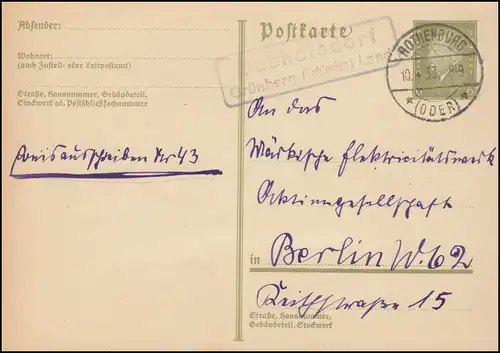 Absender:
Wohnort:
(auch Zustell- oder Leitpostamt)
Straße, Hausnummer, Gebäudeteil,
Stockwerk od. Postschließfachnummer
Preisausschreiben Nr 43
Postkarte
Grünberg (Schles) Land
ROTHENBURG
10.4.33. 8-9
* (ODER) *
An das
Märkische Elektricitätswerk
Aktiengesellschaft
in Berlin W. 62
Keithstraße 15
Straße, Hausnummer,
Gebäudeteil, Stockwerk